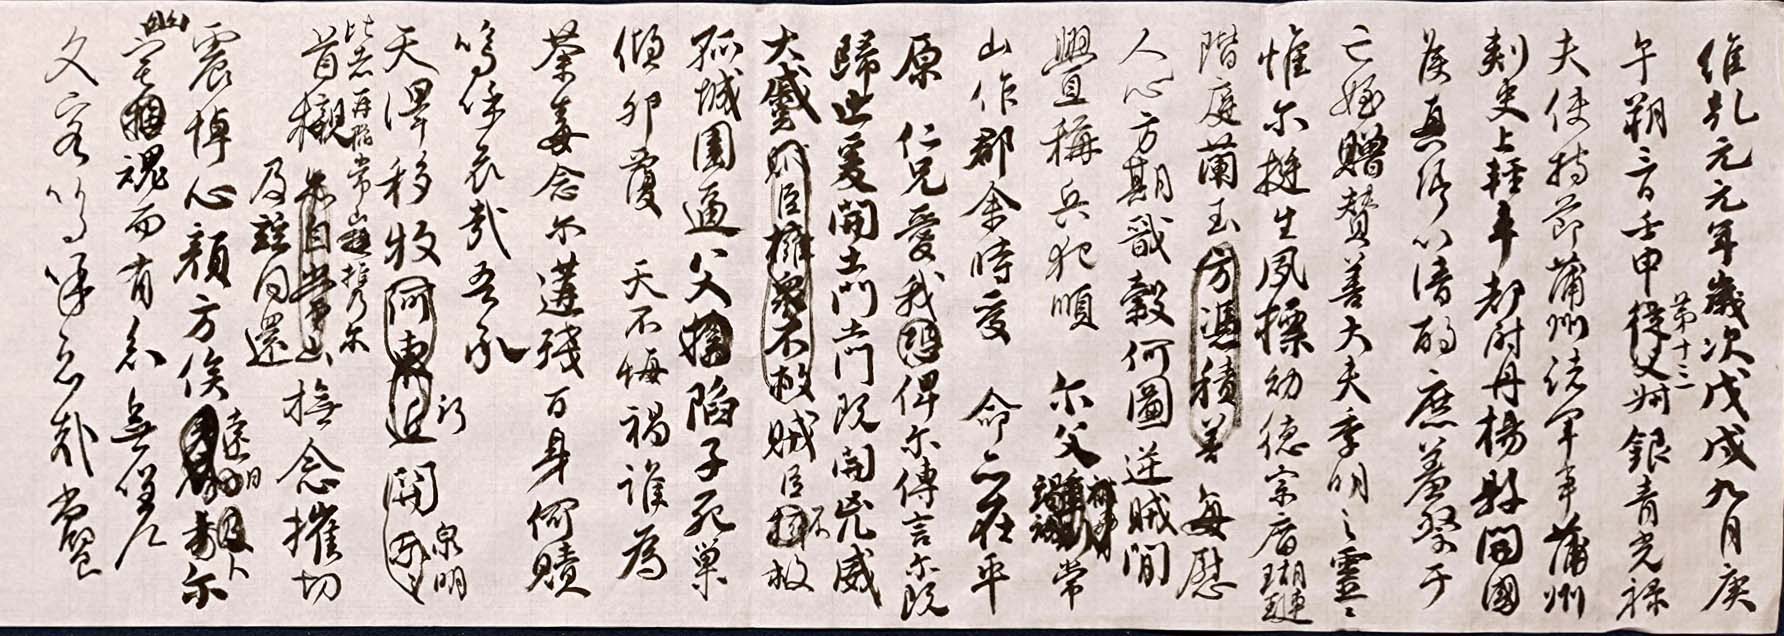 維乾元元年歲次戊戌九月庚
午朔三日壬申第十三從父叔銀青光祿
夫使持節蒲州諸軍事蒲州
刺史上輕車都尉丹楊縣開國
侯真卿以清酌庶羞祭于
亡姪贈贊善大夫季明之靈
惟爾挺生夙標幼德宗廟瑚璉
階庭蘭玉方憑積善每慰
人心方期戩穀何圖逆賊閒
釁稱兵犯順爾父常
山作郡余時受命亦在平
原仁兄愛我恐俾爾傳言爾既
歸止爰開土門土門既開凶威
大蹙賊臣擁眾不救賊臣不救
孤城圍逼父陷子死巢
傾卵覆天不悔禍誰為
荼毒念爾遘殘百身何贖
嗚呼哀哉吾承
天澤移牧河東近河關泉明
比者再陷常山攜爾
首櫬及茲同還撫念摧切
震悼心顏方俟遠日卜爾
幽宅魂而有知無嗟久
客嗚呼哀哉尚饗